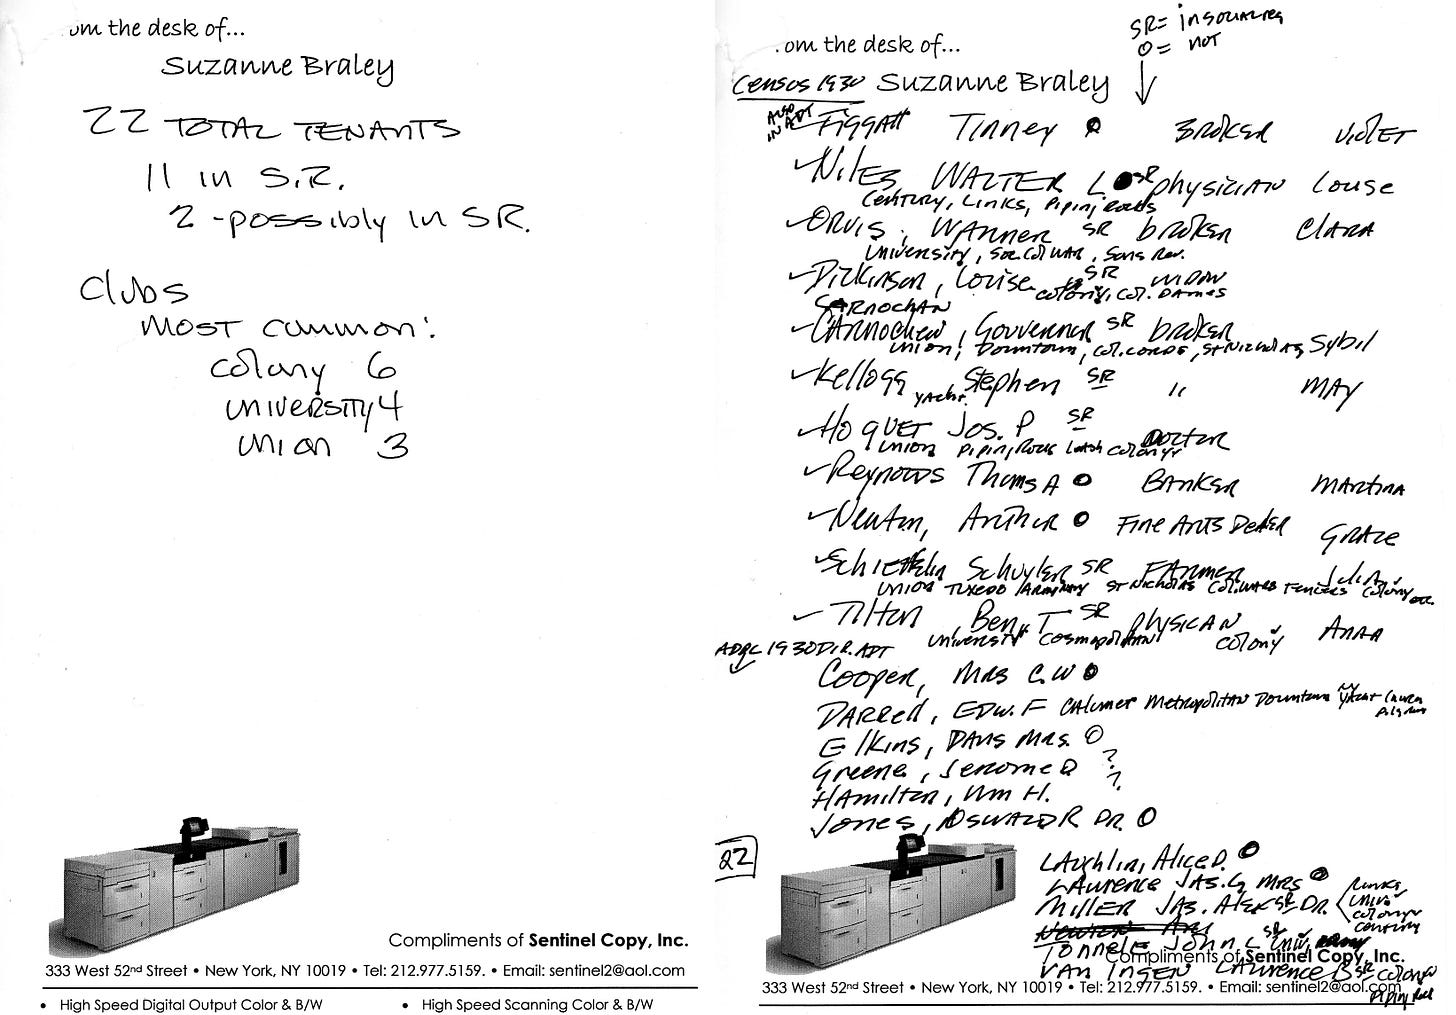 om the desk of...
Suzanne Braley
22 TOTAL TENANTS
11 in S.R.
2 - possibly in SR.
Clubs
MOST common:
colony 6
UNIVERSITY 4
union 3
Compliments of Sentinel Copy, Inc.
333 West 52nd Street • New York, NY 10019 • Tel: 212.977.5159. • Email: sentinel2@aol.com
• High Speed Digital Output Color & B/W • High Speed Scanning Color & B/W
SR= in
O= NOT
om the desk of...
Census 1930 Suzanne Braley
ALSO
IN ADT
Figgatt Tinney O BROKER VIOLET
Niles WALTER L SR physician Louise
Century, Links, Piping Rocks
ORVIS, WARNER SR broker CLARA
University, Soc. Col WAR, Sons Rev.
Dickinson, Louise SR WIDOW
colony, Col. DAMES
CARNOCHAN
CARNOCHEN, Gouverneur SR broker Sybil
Union, Downtown, Col. LORDS, ST Nicholas
Kellogg Stephen SR " MAY
YACHT
HOGUET Jos. P SR Doctor
Union Piping Rock colony
Reynolds Thoms A O BANKER MARTINA
Newton, Arthur O FINE ARTS DEALER GRACE
Schieffelin Schuyler SR FARMER Julia
UNION TUXEDO ST NICHOLAS COL. WARS FENCERS Colony etc.
Tilton, Benj T SR physician ANNA
University Cosmopolitan colony
1930 DIR. ADT
Cooper, Mrs C. W O
DARRELL, EDW. F Calumet Metropolitan Downtown NY YACHT
Elkins, DAVIS MRS. O
Greene, Jerome D ?
HAMILTON, Wm H. ?
Jones, OSWALD R DR. O
22
LAughlin, Alice D. O
LAWRENCE JAS. G MRS O
MILLER JAS. ALEX SR DR. Links
Univ
colony
century
TONNELE John L SR Univ,
Compliments of Sentinel Copy, Inc.
VAN INGEN LAWRENCE B SR colony
Piping Rock
333 West 52nd Street • New York, NY 10019 • Tel: 212.977.5159. • Email: sentinel2@aol.com